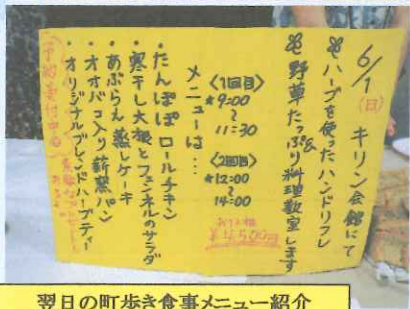 6/1(日) キリン会館にて
⌘ハーブを使ったハンドリフレ
&
⌘野草たっぷり料理教室します
〈1回目〉
★9:00
〜
11:30
〈2回目〉
★12:00
〜
14:00
お1人様
¥4,500円
メニューは…
・たんぽぽロールチキン
・寒干し大根とフェンネルのサラダ
・あぶらえ蒸しケーキ
・オオバコ入り薪窯パン
・オリジナルブレンドハーブティー
(予約受付中)
翌日の町歩き食事メニュー紹介